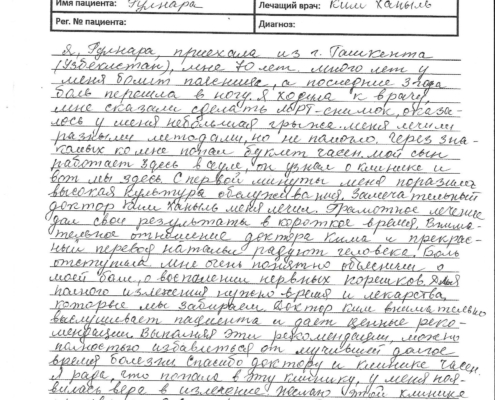 Имя пациента: Гулнара Лечащий врач: Ким Ханыль
Рег. № пациента: Диагноз:
Я, Гулнара, приехала из г. Ташкента
(Узбекистан), мне 70 лет. много лет у
меня болит поясница, а последние 3 года
боль перешла в ногу. Я ходила к врачу,
мне сказали сделать МРТ-снимок, оказа-
лось у меня небольшая грыжа. меня лечили
разными методами, но не помогло. Через зна-
комых ко мне попал буклет Часен. мой сын
работает здесь в Сеуле, он узнал о клинике и
вот мы здесь. С первой минуты меня поразила
высокая культура обслуживания. Замечательный
доктор Ким Ханыль меня лечил. Грамотное лечение
дал свои результаты в короткое время. Внима-
тельное отношение доктора Кима и прекрас-
ный перевод Натальи радуют человека. Боль
отступила. Мне очень понятно объяснили о
моей боли, о воспалении нервных корешков. Для
полного излечения нужно время и лекарства,
которые мы забираем. Доктор Ким внимательно
выслушивает пациента и дает ценные реко-
мендации. Выполняя эти рекомендации, можно
полностью избавиться от мучившей долгое
время болезни. Спасибо доктору и клинике Часен.
Я рада, что попала в эту клинику, у меня поя-
вилась вера в излечение. Желаю этой клинике